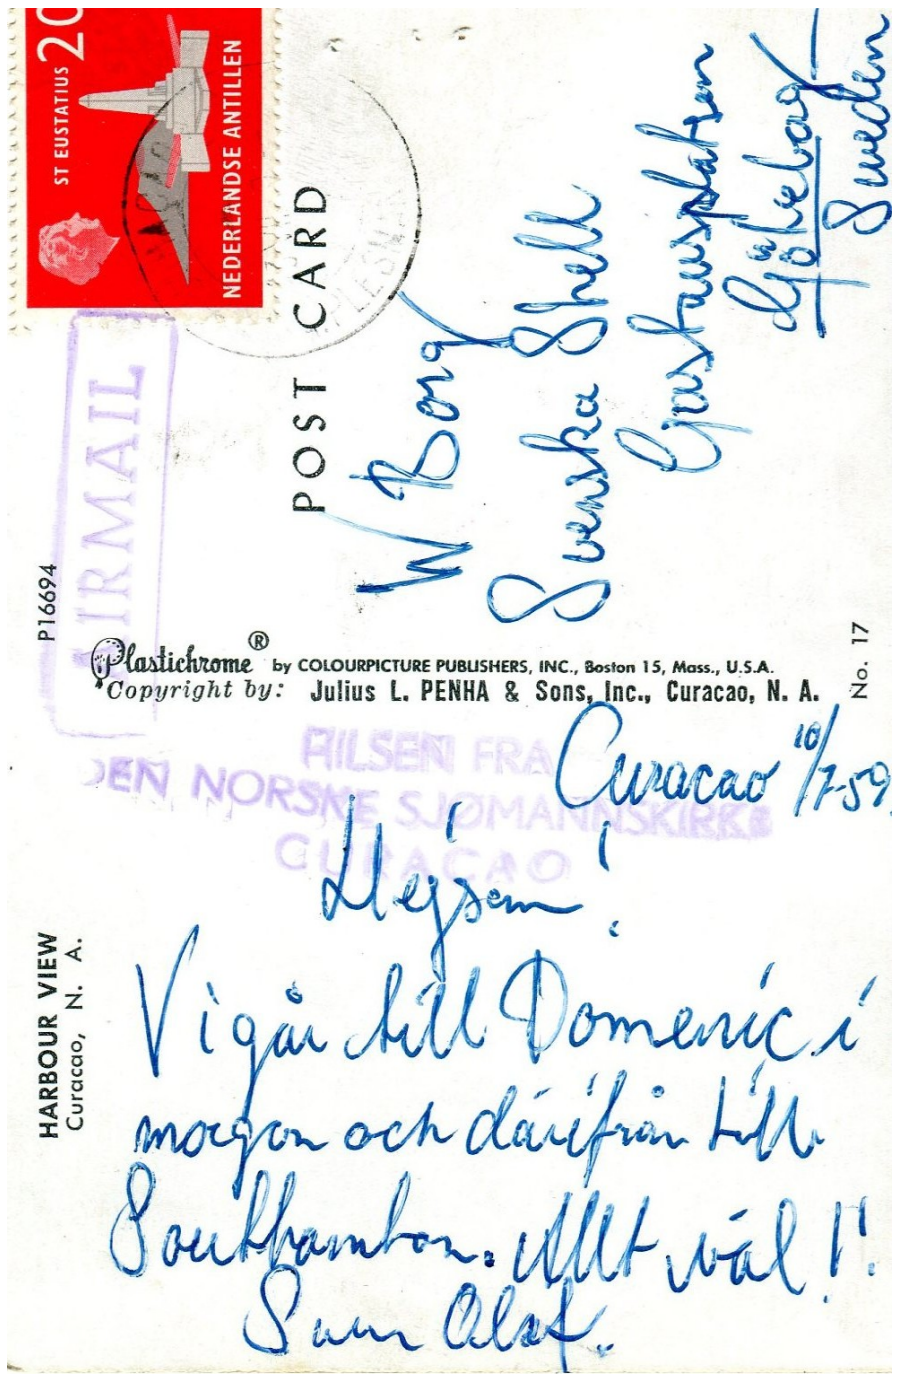 ST EUSTATIUS 20
NEDERLANDSE ANTILLEN
AIRMAIL
POST CARD
W Borg
Svenska Shell
Gustavsplatsen
Göteborg
Sweden
P16694
Plastichrome ® by COLOURPICTURE PUBLISHERS, INC., Boston 15, Mass., U.S.A.
Copyright by: Julius L. PENHA & Sons, Inc., Curacao, N. A.
No. 17
HILSEN FRA
DEN NORSKE SJØMANNSKIRKE
CURACAO
HARBOUR VIEW
Curacao, N. A.
Curacao 10/7-59
Hejsan!
Vi går till Domenic i
morgon och därifrån till
Southamton. Allt väl!!
Sven Olof.